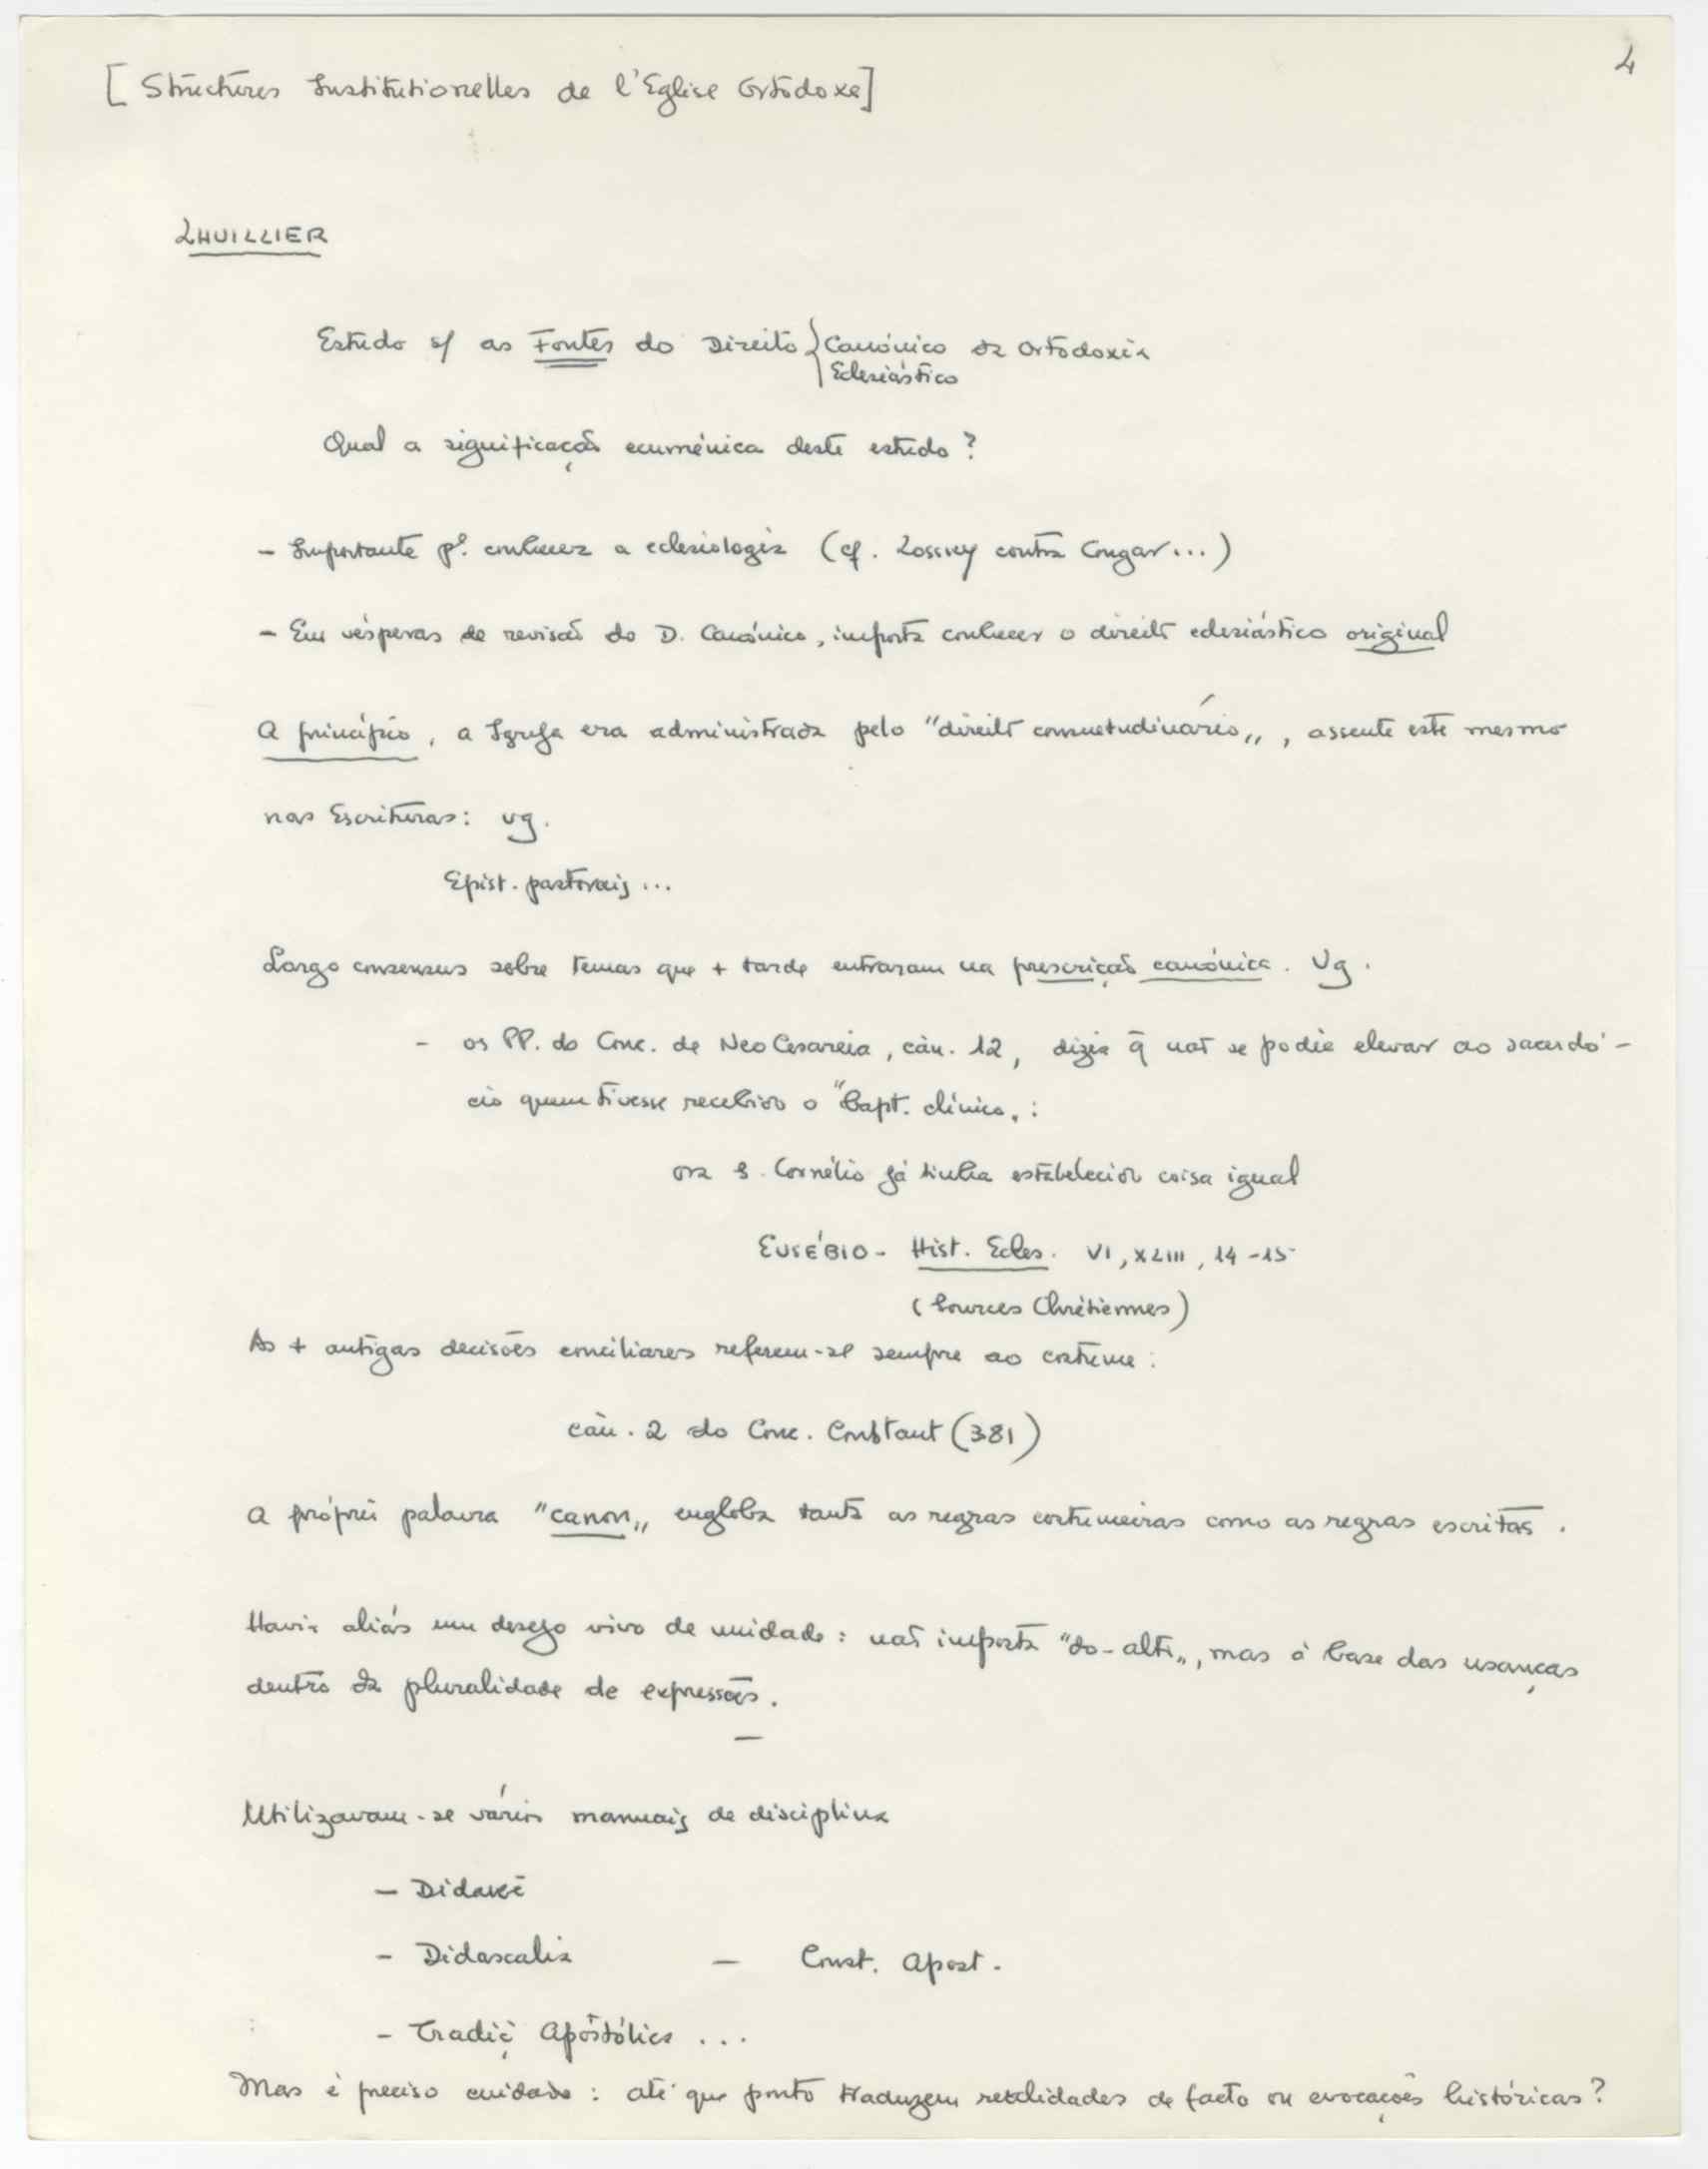 4
[Structures Institutionelles de l'Eglise Ortodoxe]
LHUILLIER
Estudo s/ as Fontes do Direito { Canónico da Ortodoxia
Eclesiástico
Qual a significação ecuménica deste estudo?
- Importante pª. conhecer a eclesiologia (cf. Lossky contra Congar...)
- Em vésperas de revisão do D. Canónico, importa conhecer o direito eclesiástico original
A princípio, a Igreja era administrada pelo "direito consuetudinário„, assente este mesmo
nas Escrituras: vg.
Epist. pastorais...
Largo consensus sobre temas que + tarde entraram na prescrição canónica. Vg.
- os PP. do Conc. de Neo Cesareia, cân. 12, dizia q̄ não se podia elevar ao sacerdó-
cio quem tivesse recebido o "bapt. clínico„:
ora S. Cornélio já tinha estabelecido coisa igual
EUSÉBIO - Hist. Ecles. VI, XLIII, 14-15
(Sources Chrétiennes)
As + antigas decisões conciliares referem-se sempre ao costume:
cân. 2 do Conc. Constant (381)
A própria palavra "canon„ engloba tanto as regras costumeiras como as regras escritas.
Havia aliás um desejo vivo de unidade: não imposta "do-alto„, mas à base das usanças
dentro da pluralidade de expressões.
Utilizavam-se vários manuais de disciplina
- Didaké
- Didascalia - Const. Apost.
- Tradiç̣ Apostólica ...
Mas é preciso cuidado: até que ponto traduzem realidades de facto ou evocações históricas?